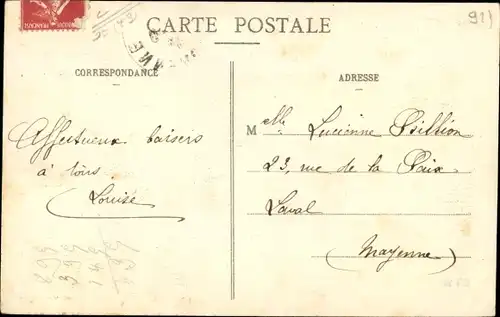 CARTE POSTALE
CORRESPONDANCE
ADRESSE
Affectueux baisers
à tous
Louise
M lle Lucienne
23, rue de la Paix
Laval
(Mayenne)
91)